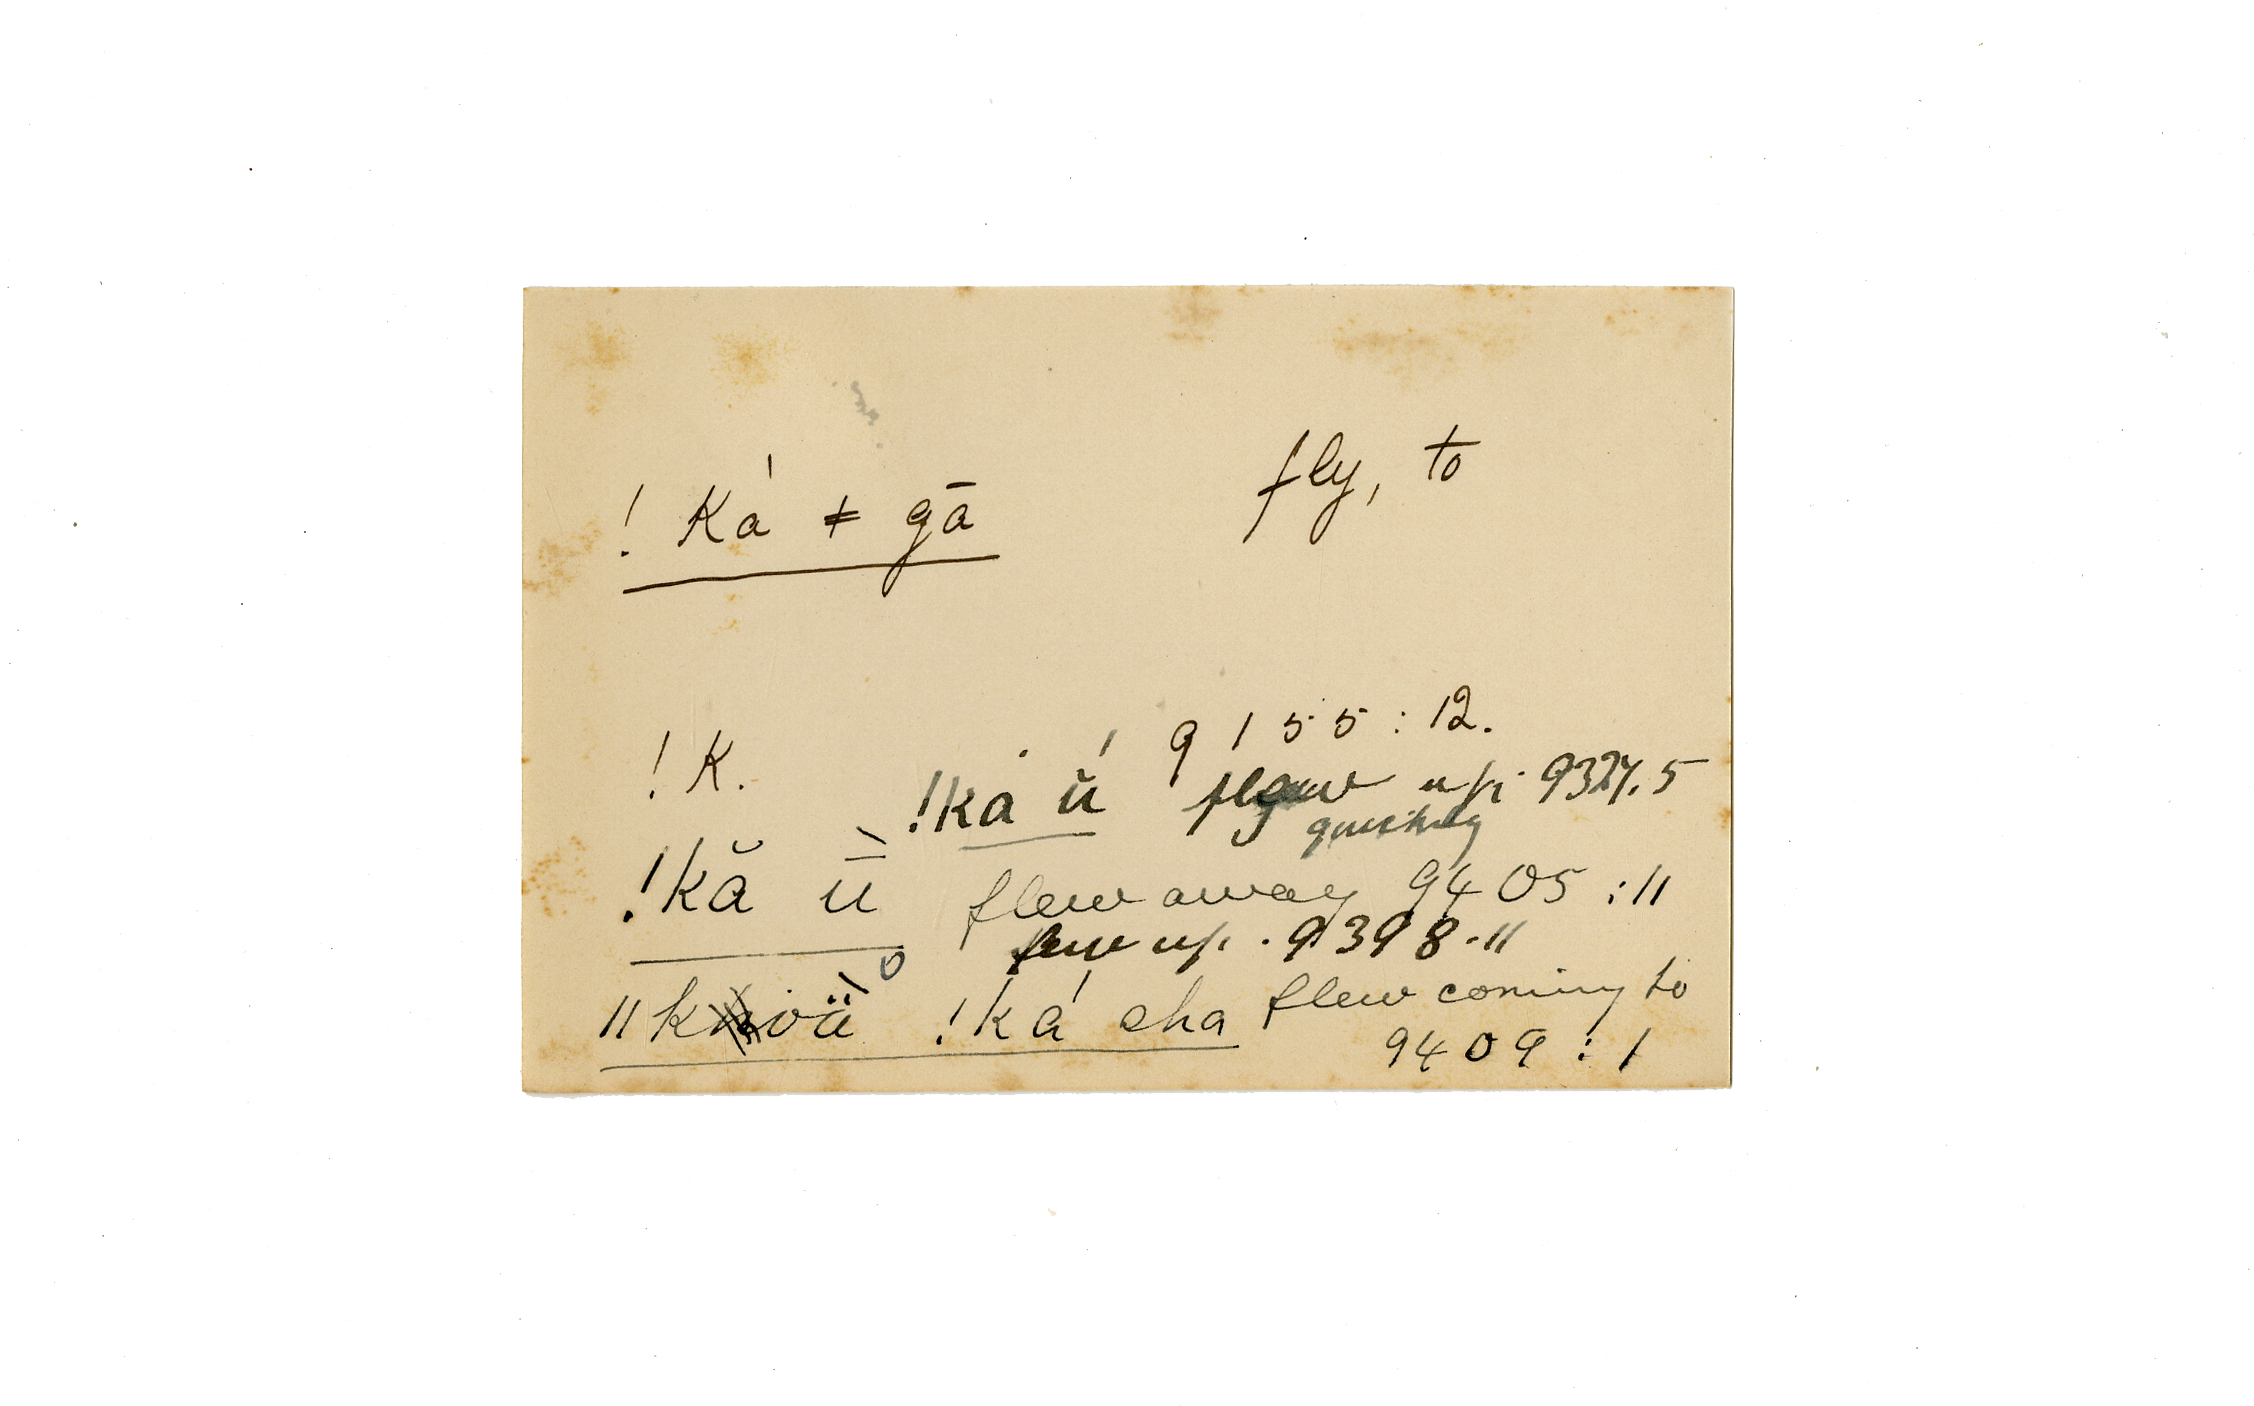 ! Ká ǂ gā fly, to
! K. 9155:12.
!ká ŭ́ flew up 9327.5
quickly
!kă ū̀ flew away 9405:11
flew up. 9398.11
ǁk oä̀ !ká cha flew coming to
9409:1